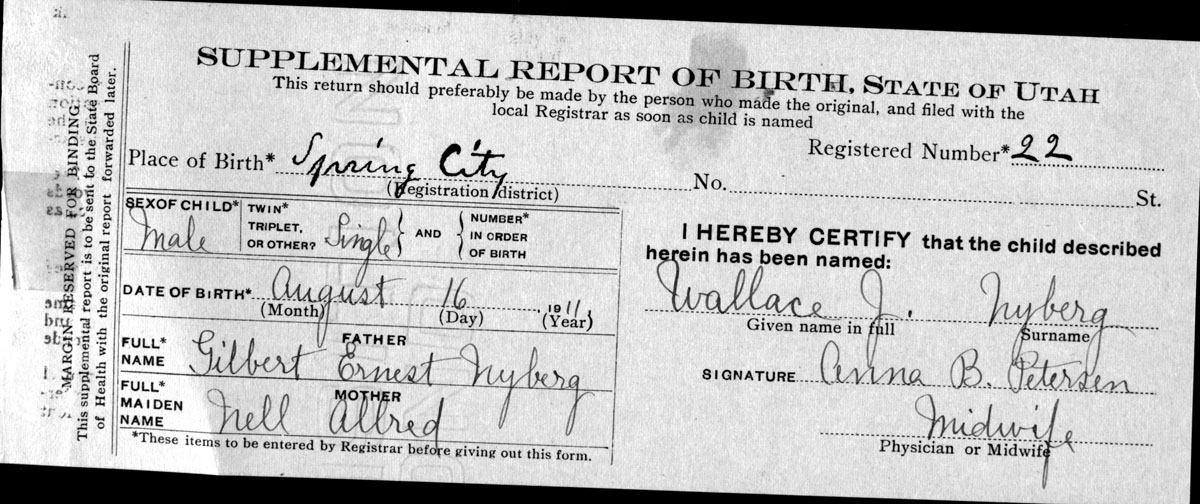 SUPPLEMENTAL REPORT OF BIRTH, STATE OF UTAH
This return should preferably be made by the person who made the original, and filed with the
local Registrar as soon as child is named
Registered Number* 22
Place of Birth* Spring City No. St.
(Registration district)
SEX OF CHILD* Male
TWIN* TRIPLET, OR OTHER? Single AND NUMBER* IN ORDER OF BIRTH
DATE OF BIRTH* August 16 1911
(Month) (Day) (Year)
FATHER
FULL* NAME Gilbert Ernest Nyberg
MOTHER
FULL* MAIDEN NAME Nell Allred
*These items to be entered by Registrar before giving out this form.
I HEREBY CERTIFY that the child described
herein has been named:
Wallace J. Nyberg
Given name in full Surname
SIGNATURE Anna B. Petersen
Midwife
Physician or Midwife
MARGIN RESERVED FOR BINDING
This supplemental report is to be sent to the State Board
of Health with the original report forwarded later.